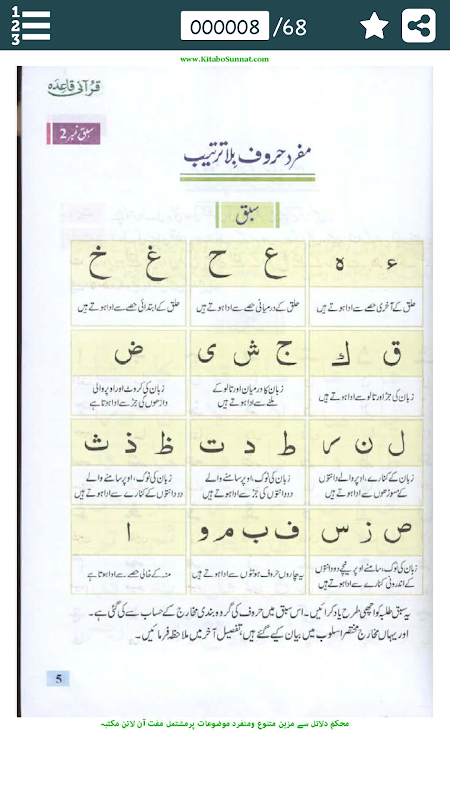 1
2
3
000008 /68
www.KitaboSunnat.com
قرآنی قاعدہ
سبق نمبر 2
مفرد حروف بلا ترتیب
سبق
ء ہ
ع ح
غ خ
حلق کے آخری حصے سے ادا ہوتے ہیں
حلق کے درمیانی حصے سے ادا ہوتے ہیں
حلق کے ابتدائی حصے سے ادا ہوتے ہیں
ق ك
ج ش ی
ض
زبان کی جڑ اور تالو سے ادا ہوتے ہیں
زبان کا درمیان اور تالو کے
ملنے سے ادا ہوتے ہیں
زبان کی کروٹ اور اوپر والی
داڑھوں کی جڑ سے ادا ہوتا ہے
ل ن ر
ط د ت
ظ ذ ث
زبان کے کنارے، اوپر والے دانتوں
کے مسوڑھوں سے ادا ہوتے ہیں
زبان کی نوک، اوپر سامنے والے
دو دانتوں کی جڑ سے ادا ہوتے ہیں
زبان کی نوک، اوپر سامنے والے
دو دانتوں کے کنارے سے ادا ہوتے ہیں
ص ز س
ف ب م و
ا
زبان کی نوک، سامنے اوپر نیچے دو دانتوں
کے اندرونی کنارے سے ادا ہوتے ہیں
یہ چاروں حروف ہونٹوں سے ادا ہوتے ہیں
منہ کے خالی حصے سے ادا ہوتا ہے
یہ سبق طلبہ کو اچھی طرح یاد کرائیں۔ اس سبق میں حروف کی گروہ بندی مخارج کے حساب سے کی گئی ہے۔
اور یہاں مخارج مختصر اسلوب میں بیان کیے گئے ہیں، تفصیل آخر میں ملاحظہ فرمائیں۔
5
محکم دلائل سے مزین متنوع ومنفرد موضوعات پرمشتمل مفت آن لائن مکتبہ